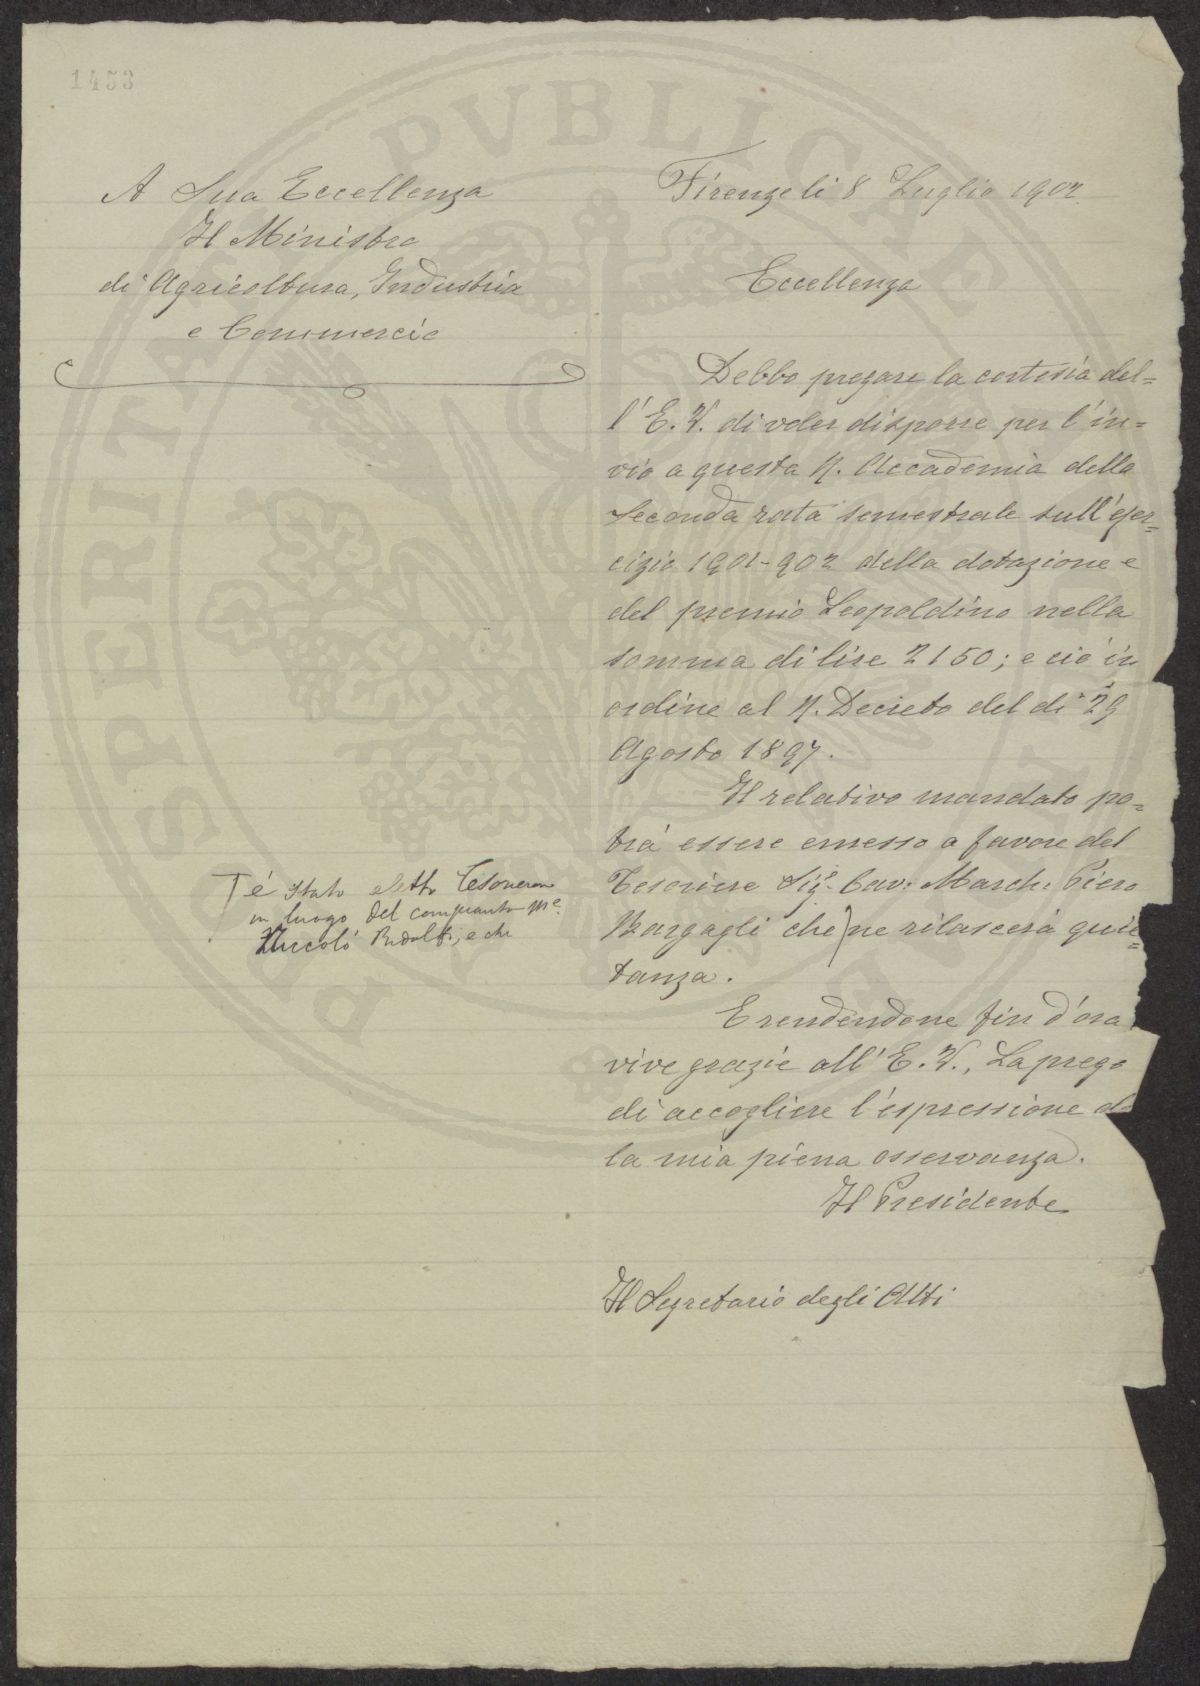 1453
A Sua Eccellenza
Il Ministro
di Agricoltura, Industria
e Commercio
Firenze li 8 Luglio 1902
Eccellenza
Debbo pregare la cortesia del=
l'E. V. di voler disporre per l'in=
vio a questa R. Accademia della
Seconda rata semestrale sull'eser=
cizio 1901-902 della dotazione e
del premio Leopoldino nella
somma di lire 2150; e ciò in
ordine al R. Decreto del di 29
Agosto 1897.
Il relativo mandato po=
trà essere emesso a favore del
Tesoriere Sig. Cav: March: Piero
Bargagli che ne rilascerà quie=
tanza.
E rendendone fin d'ora
vive grazie all'E. V., La prego
di accogliere l'espressione d
la mia piena osservanza.
Il Presidente
Il Segretario degli Atti
è stato eletto Tesoriere
in luogo del compianto Me.
Niccolò Ridolfi, e che
PERITAS PVBLICAE PROSPERITAS